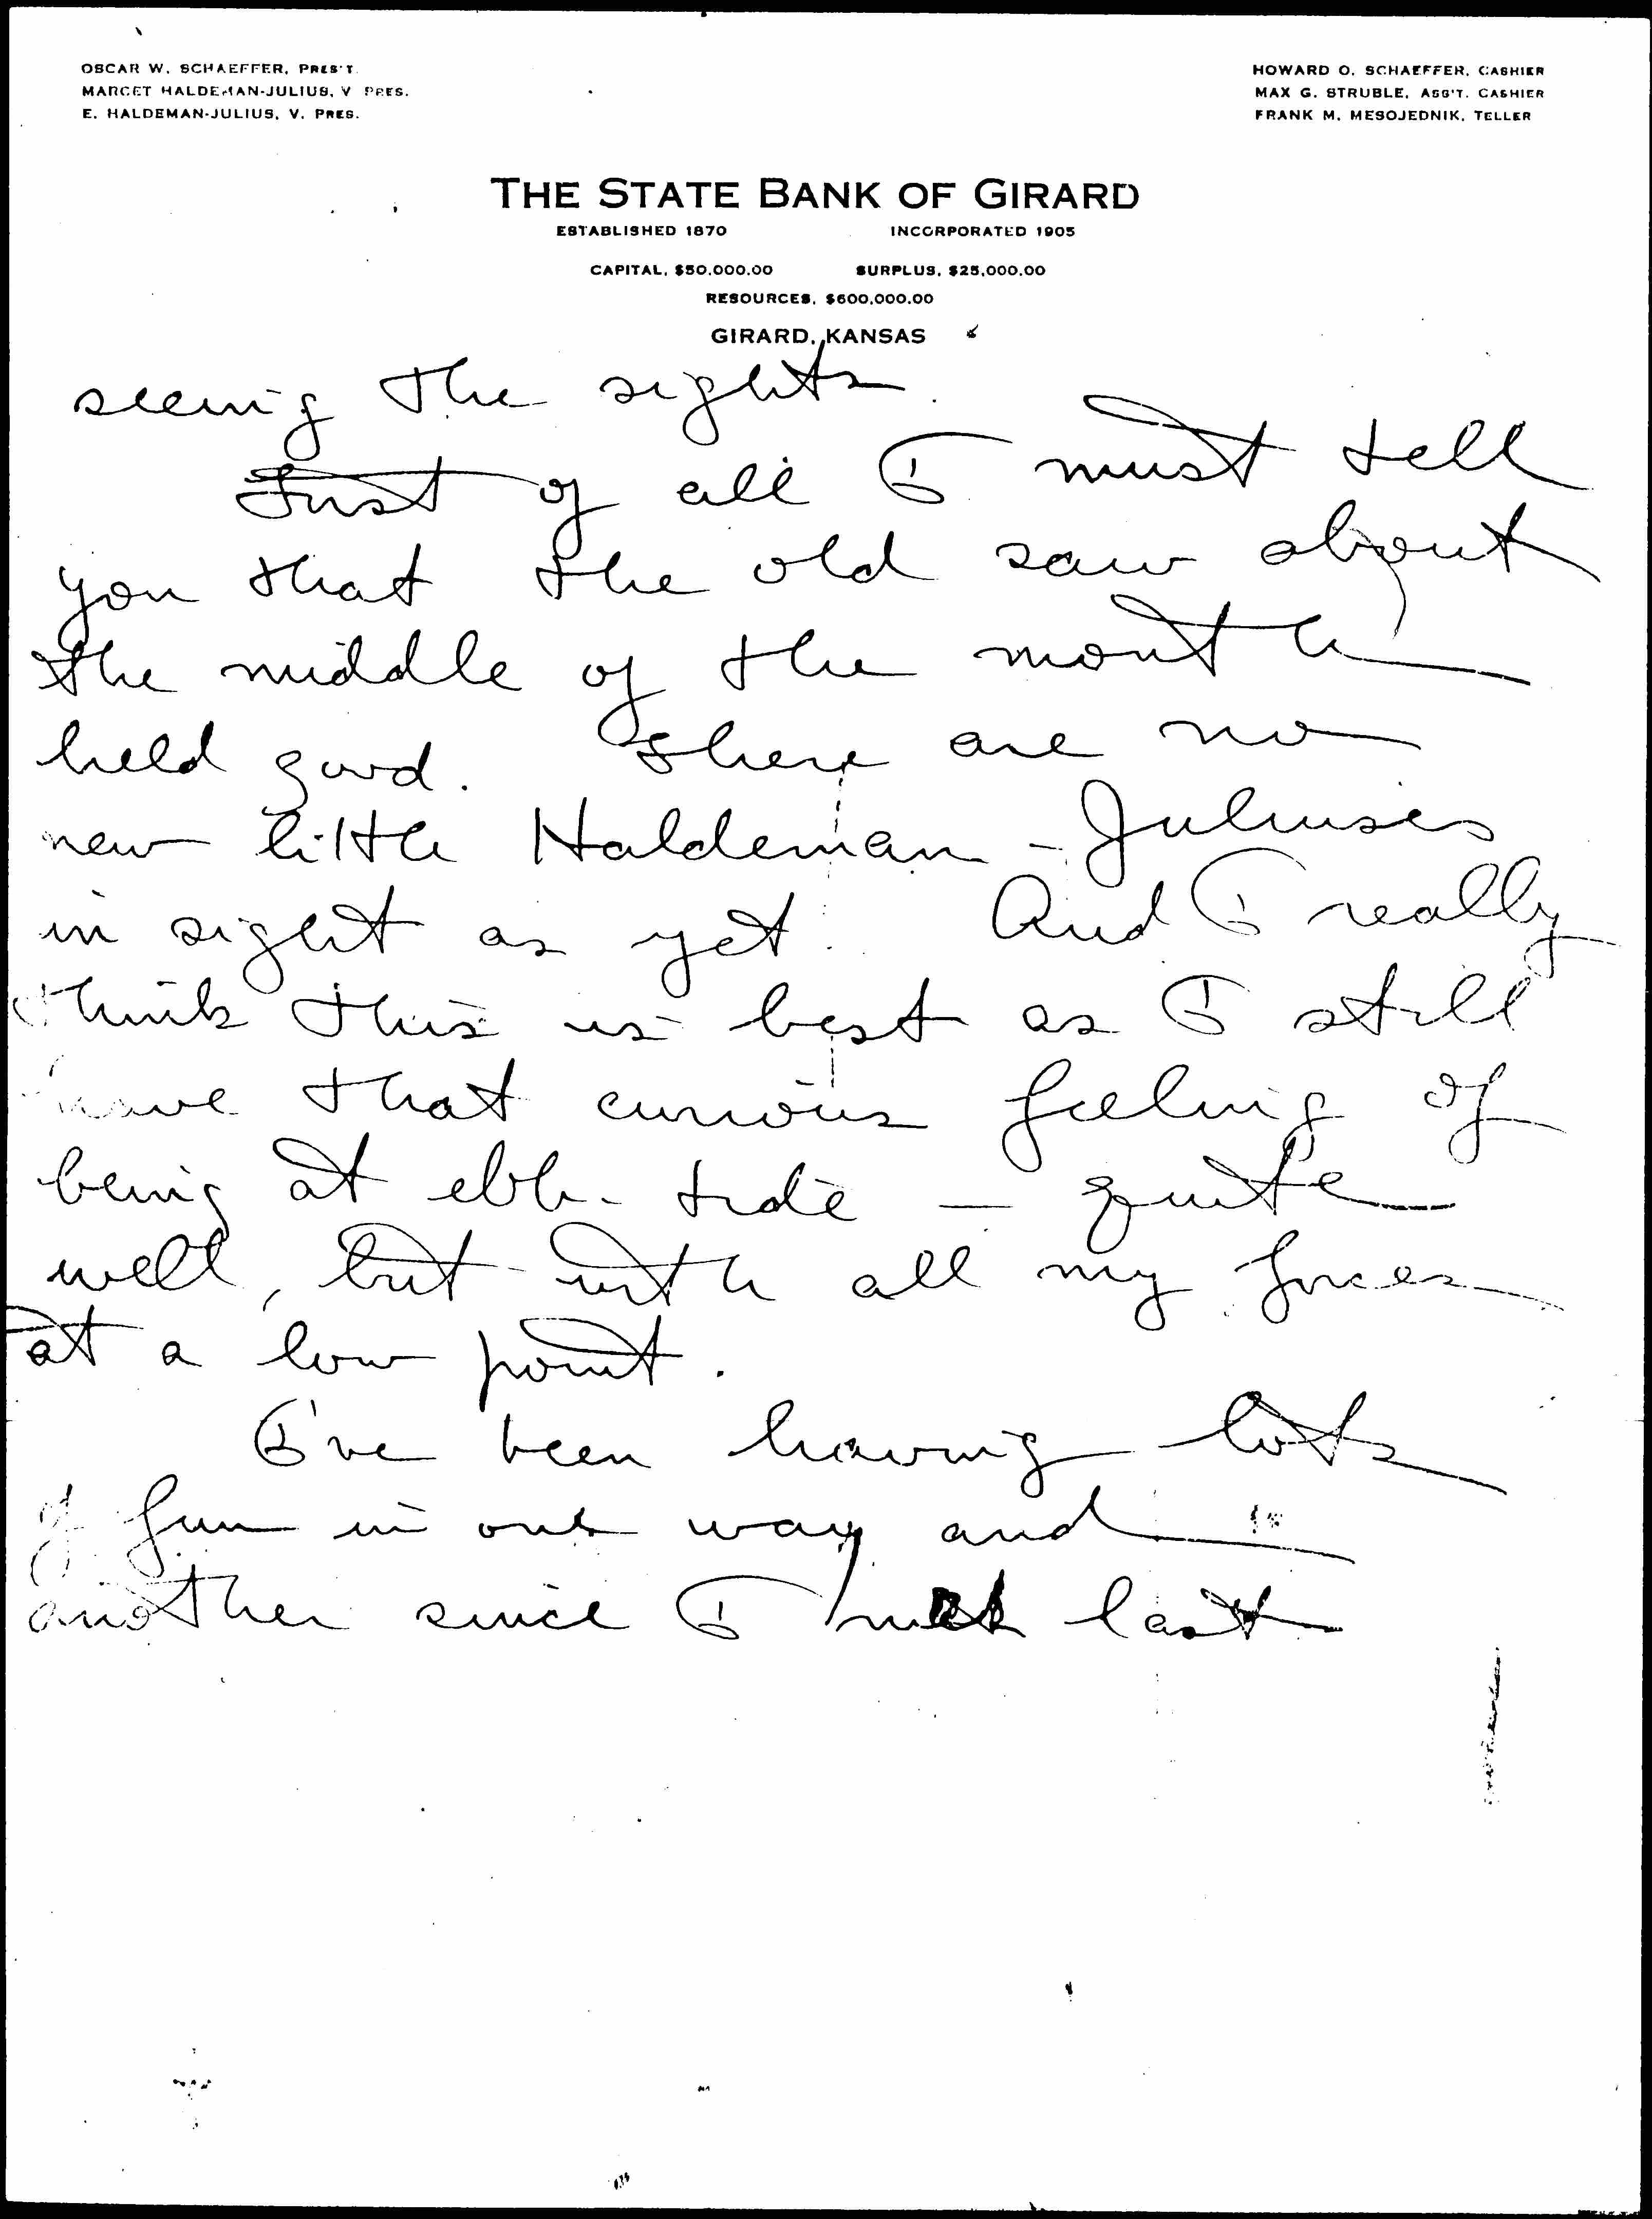 OSCAR W. SCHAEFFER, PRES'T.
MARCET HALDEMAN-JULIUS, V. PRES.
E. HALDEMAN-JULIUS, V. PRES.
HOWARD O. SCHAEFFER, CASHIER
MAX G. STRUBLE, ASS'T. CASHIER
FRANK M. MESOJEDNIK, TELLER
THE STATE BANK OF GIRARD
ESTABLISHED 1870 INCORPORATED 1905
CAPITAL, $50,000.00 SURPLUS, $25,000.00
RESOURCES, $600,000.00
GIRARD, KANSAS
seeing the sights.
First of all I must tell
you that the old saw about
the middle of the month
held good. There are no
new little Haldeman-Juliuses
in sight as yet. And I really
think this is best as I still
have that curious feeling of
being at ebb-tide — quite
well, but with all my forces
at a low point.
I've been having lots
of fun in one way and
another since I last